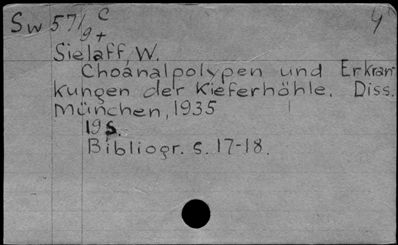 Sw 57/9+ C
Sielaff, W.
Choanalpolypen und Erkran-
kungen der Kieferhöhle. Diss.
München, 1935
19 S.
Bibliogr. s. 17-18.